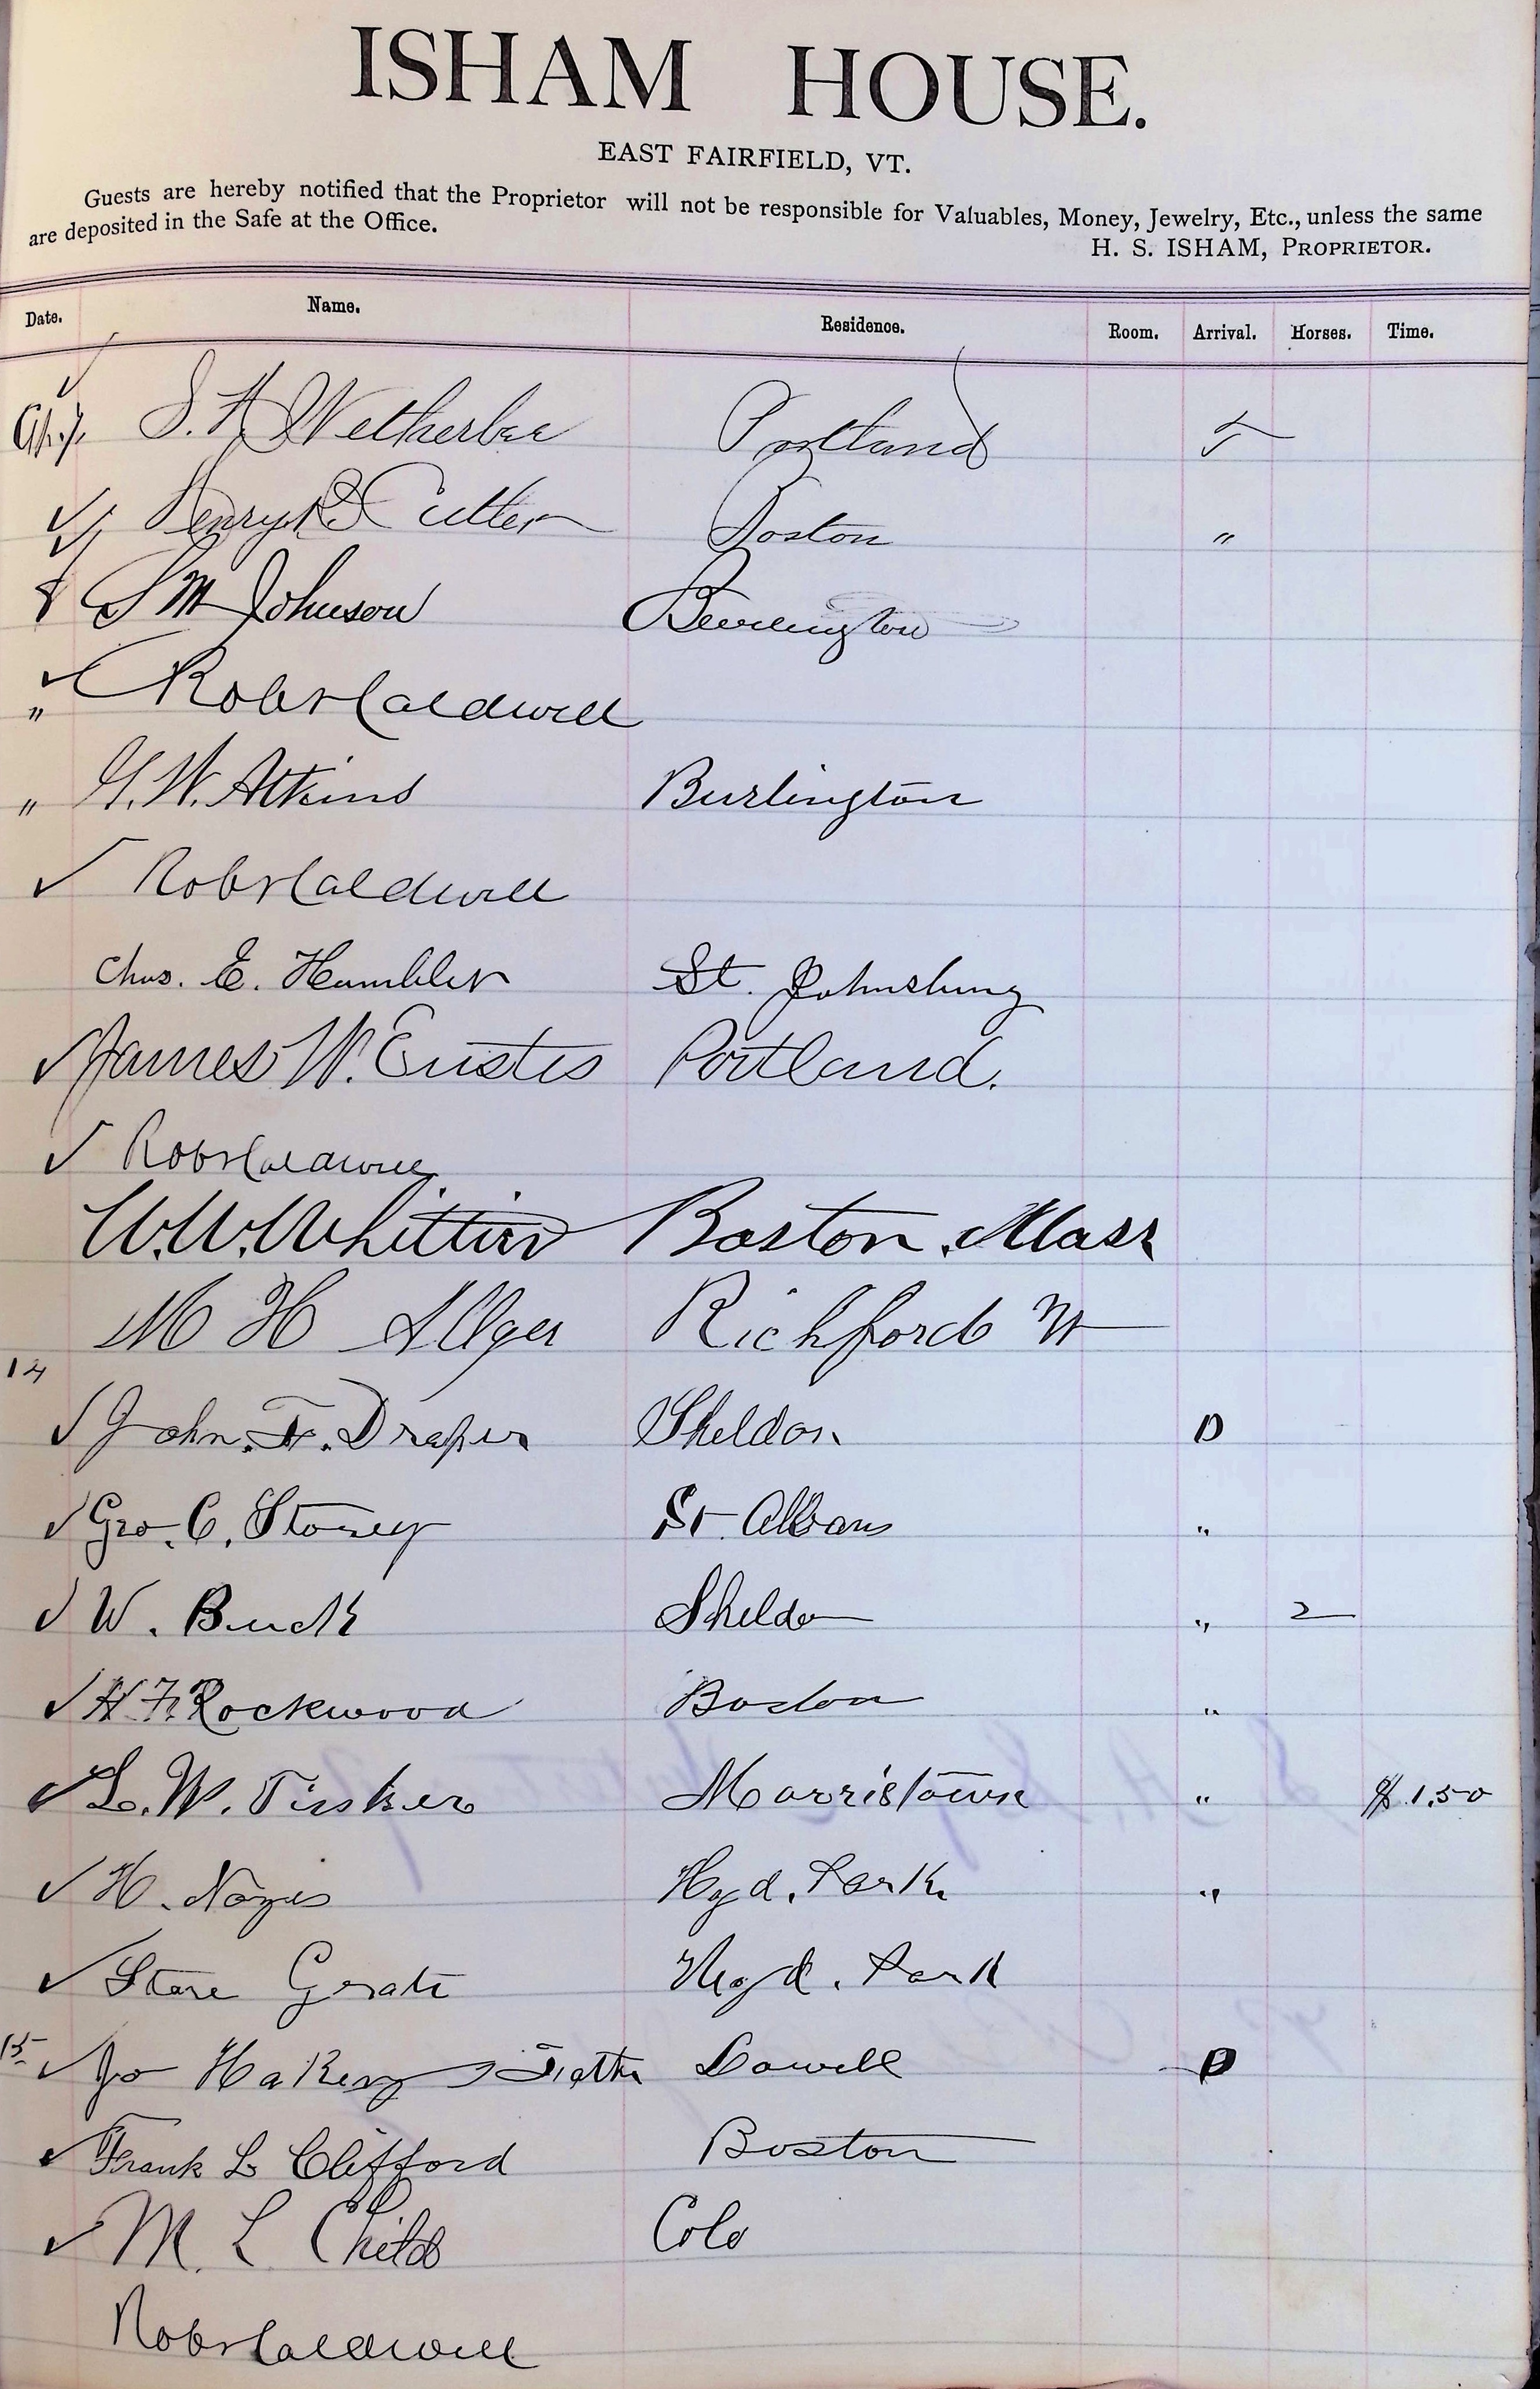 ISHAM HOUSE.
EAST FAIRFIELD, VT.
Guests are hereby notified that the Proprietor will not be responsible for Valuables, Money, Jewelry, Etc., unless the same
are deposited in the Safe at the Office.
H. S. ISHAM, PROPRIETOR.
Date. Name. Residence. Room. Arrival. Horses. Time.
Wetherbee Portland
✓ Henry Cutler Boston "
S M Johnson Burlington
✓ " Robt Caldwell
" G. W. Atkins Burlington
✓ Robt Caldwell
Chas. E. Humbler St. Johnsbury
✓ James W. Eustis Portland.
✓ Robt Caldwell
W. W. Whittier Boston. Mass
M H Alger Richford Vt
14
✓ John. F. Draper Sheldon D
✓ Geo. C. Storey St. Albans "
✓ W. Buck Sheldon " 2
✓ H F Rockwood Boston "
✓ L. W. Tinker Morristown " $1.50
✓ H. Noyes Hyd. Park "
✓ Hyd. Park
15 ✓ Jo Lowell D
✓ Frank L Clifford Boston
✓ M. L Childs Colo
Robt Caldwell